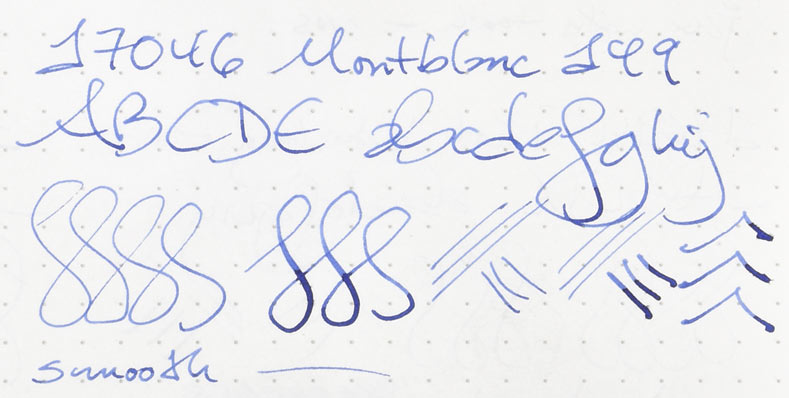 17046 Montblanc 149
ABCDE abcdefghij
smooth